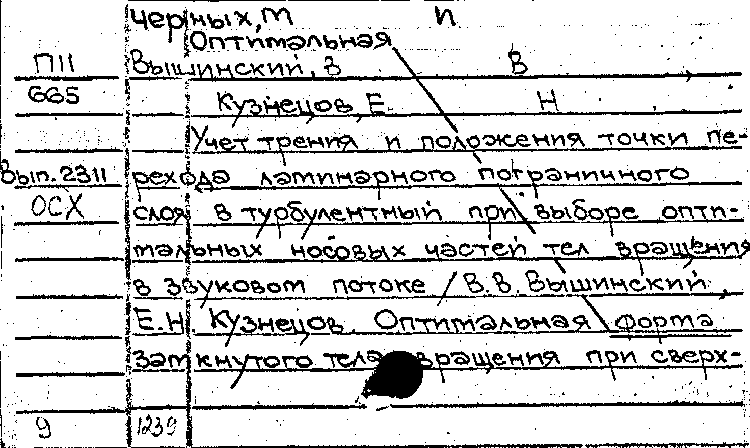 Черных, М П
Оптимальная
П11 Вышинский, В В
665 Кузнецов, Е. Н
Учет трения и положения точки пе-
Вып. 2311 рехода ламинарного пограничного
ОСХ слоя в турбулентный при выборе опти-
мальных носовых частей тел вращения
в звуковом потоке / В.В. Вышинский,
Е.Н. Кузнецов. Оптимальная форма
замкнутого тела вращения при сверх-
9 1239